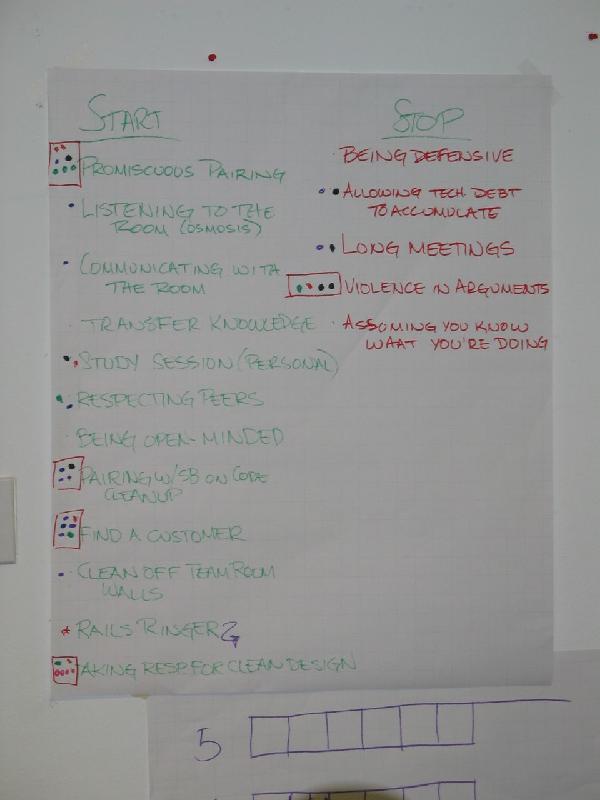 START
PROMISCUOUS PAIRING
LISTENING TO THE
ROOM (OSMOSIS)
COMMUNICATING WITH
THE ROOM
TRANSFER KNOWLEDGE
STUDY SESSION (PERSONAL)
RESPECTING PEERS
BEING OPEN-MINDED
PAIRING W/SB ON CODE
CLEANUP
FIND A CUSTOMER
CLEAN OFF TEAM ROOM
WALLS
RAILS RINGER
TAKING RESP. FOR CLEAN DESIGN
STOP
BEING DEFENSIVE
ALLOWING TECH DEBT
TO ACCUMULATE
LONG MEETINGS
VIOLENCE IN ARGUMENTS
ASSUMING YOU KNOW
WHAT YOU'RE DOING
5